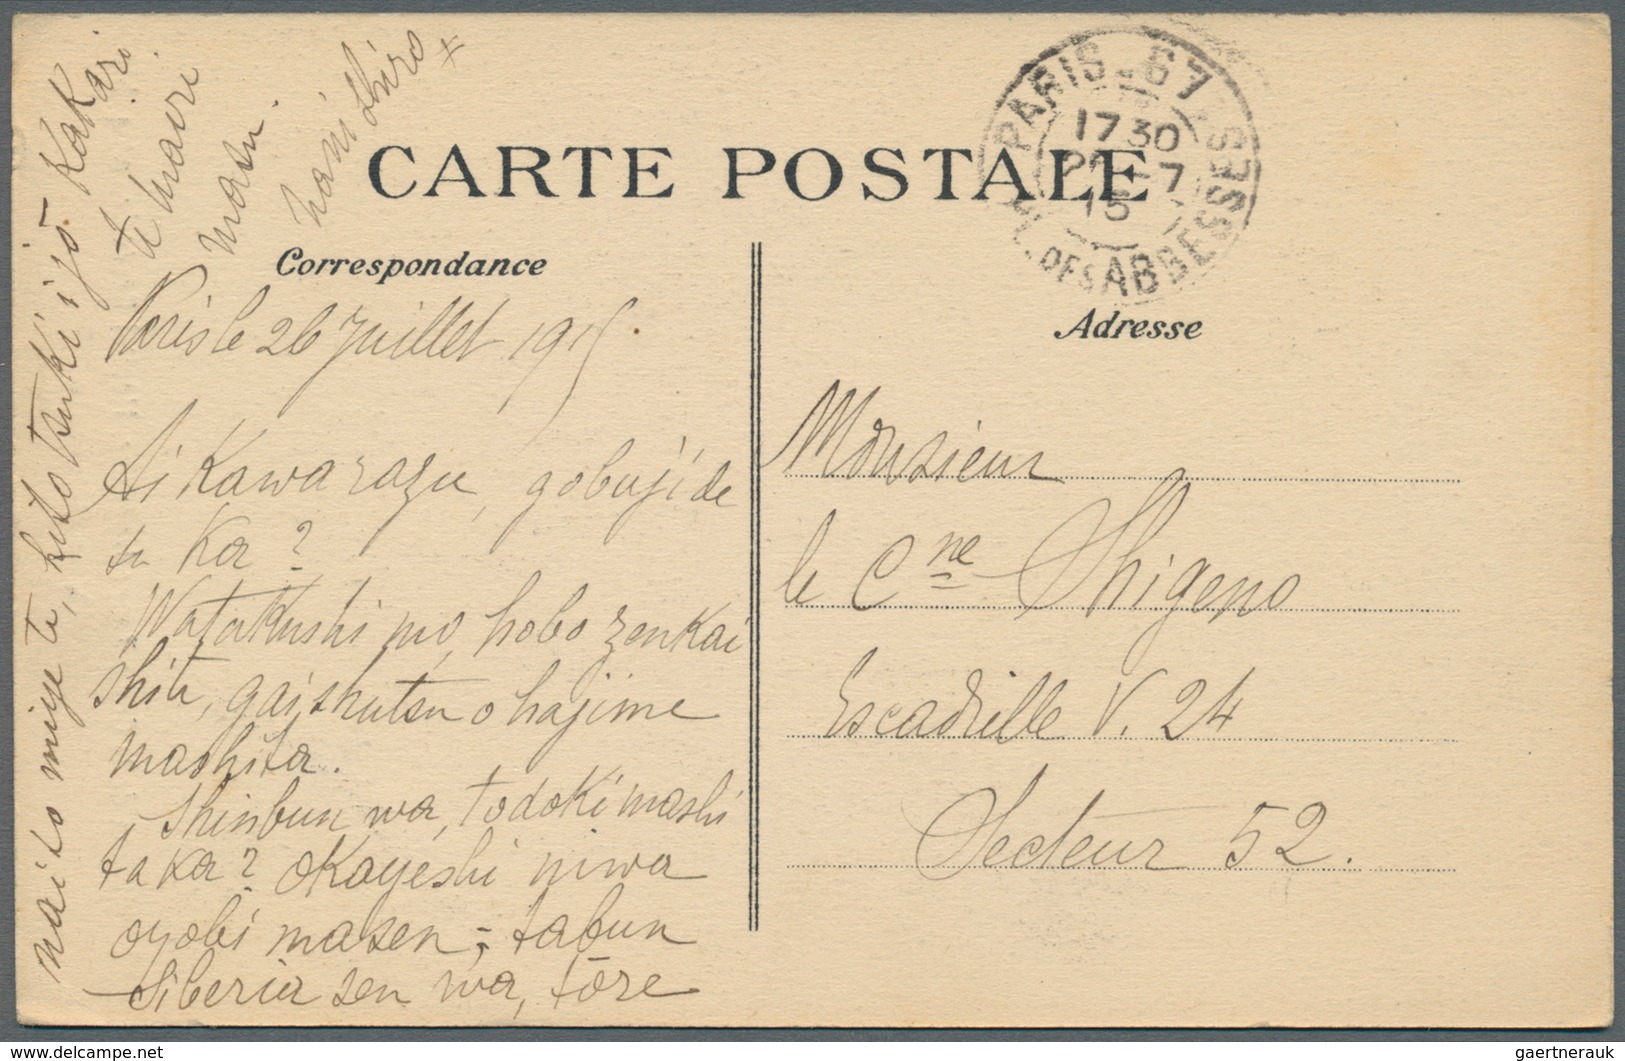 CARTE POSTALE
Correspondance
Adresse
PARIS - 67
17 30
7
15
DES ABBESSES
Paris le 26 Juillet 1915.
Ai Kawarazu, gobuji de
su Ka?
Watakushi mo, hobo zenkai
shita, gaishutsu o hajime
mashita.
Shinbun wa, todoki mashi
ta ka? Okayeshi niwa
oyobi masen; tabun
Siberia sen wa, tōre
nai to miye te, hito tsuki i jō Kakari
te mairi
masu.
nani shiro
Monsieur
le Cne Shigeno
Escadrille V. 24
Secteur 52.
gaertnerauk